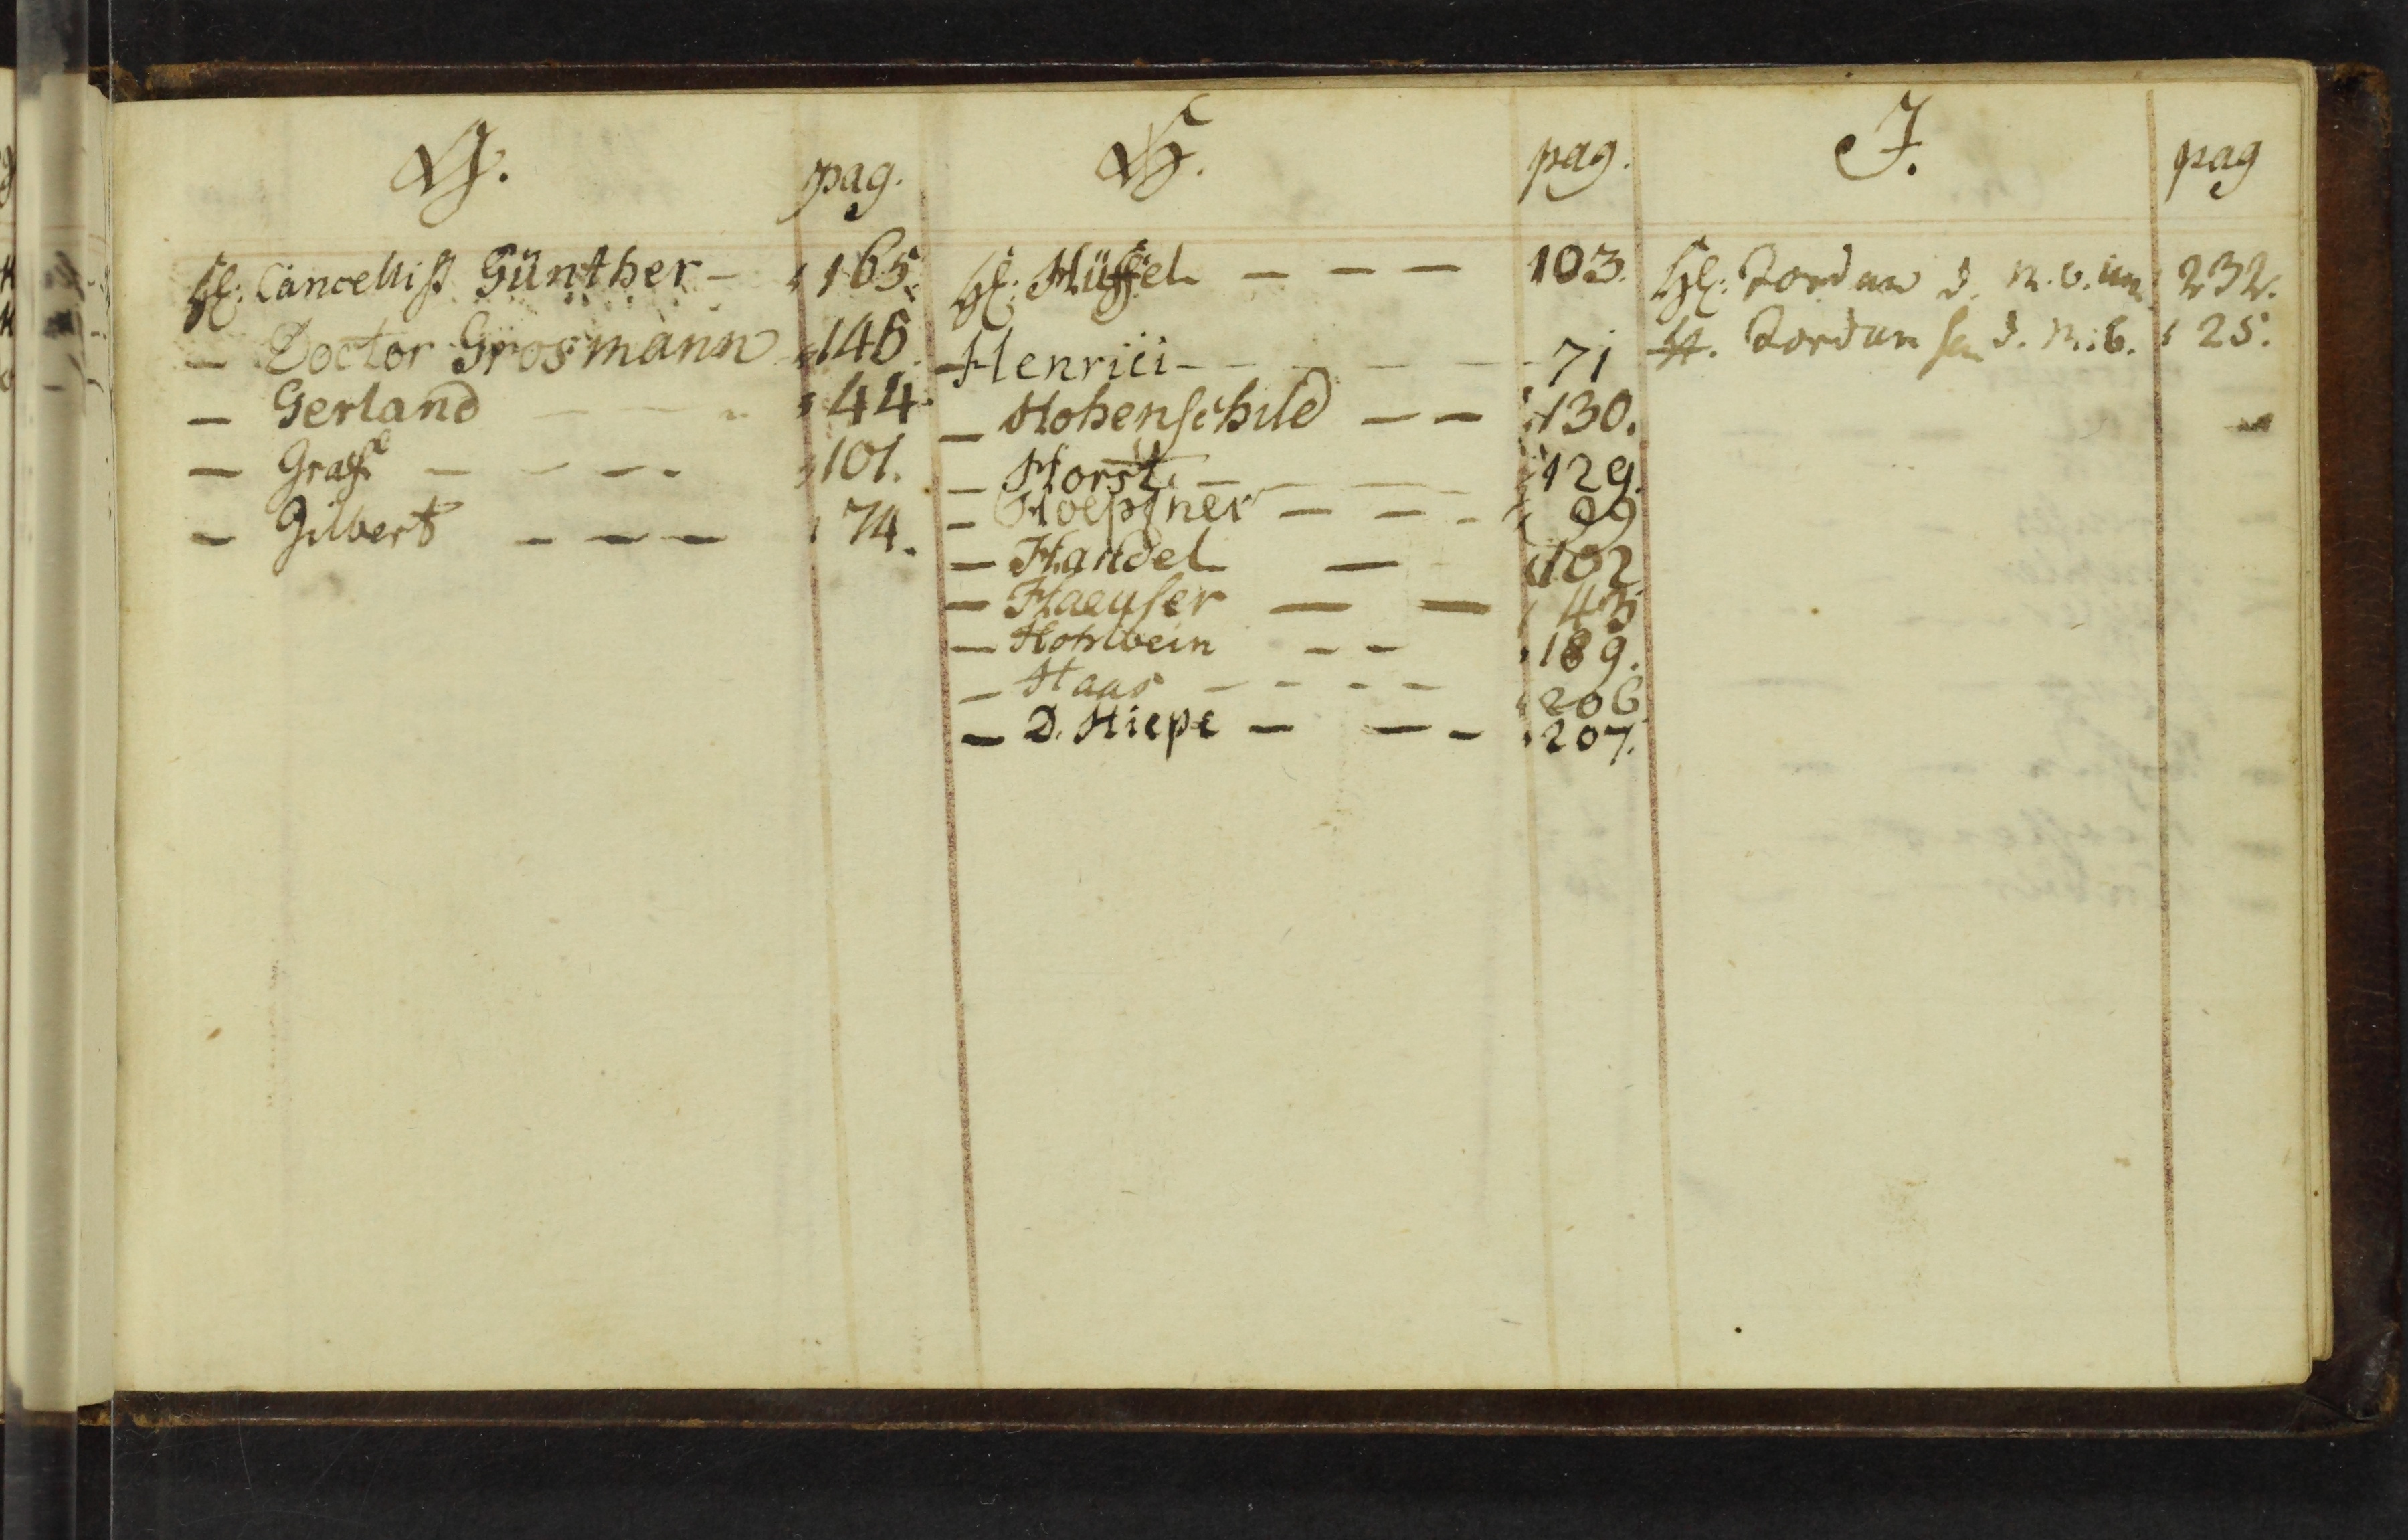 G. pag.
H: Cancellist Günther - 165.
- Doctor Grosmann 146.
- Gerland - - - 44.
- Graff - - - - 101.
- Gilbert - - - 74.
H. pag.
H: Hüffel - - - 103.
- Henrici - - - - - 71
- Hohenschild - - 130.
- Horst. - - - 129.
- Hoepfner - - - 99
- Handel - 102
- Haeuser - - 43
- Hohlbein - - 189.
- Haas - - - - 206
- D. Hiepe - - - 207.
J. pag
H: Jordan d. R. B. 232.
H. Jordan sen d. R. B. 25.